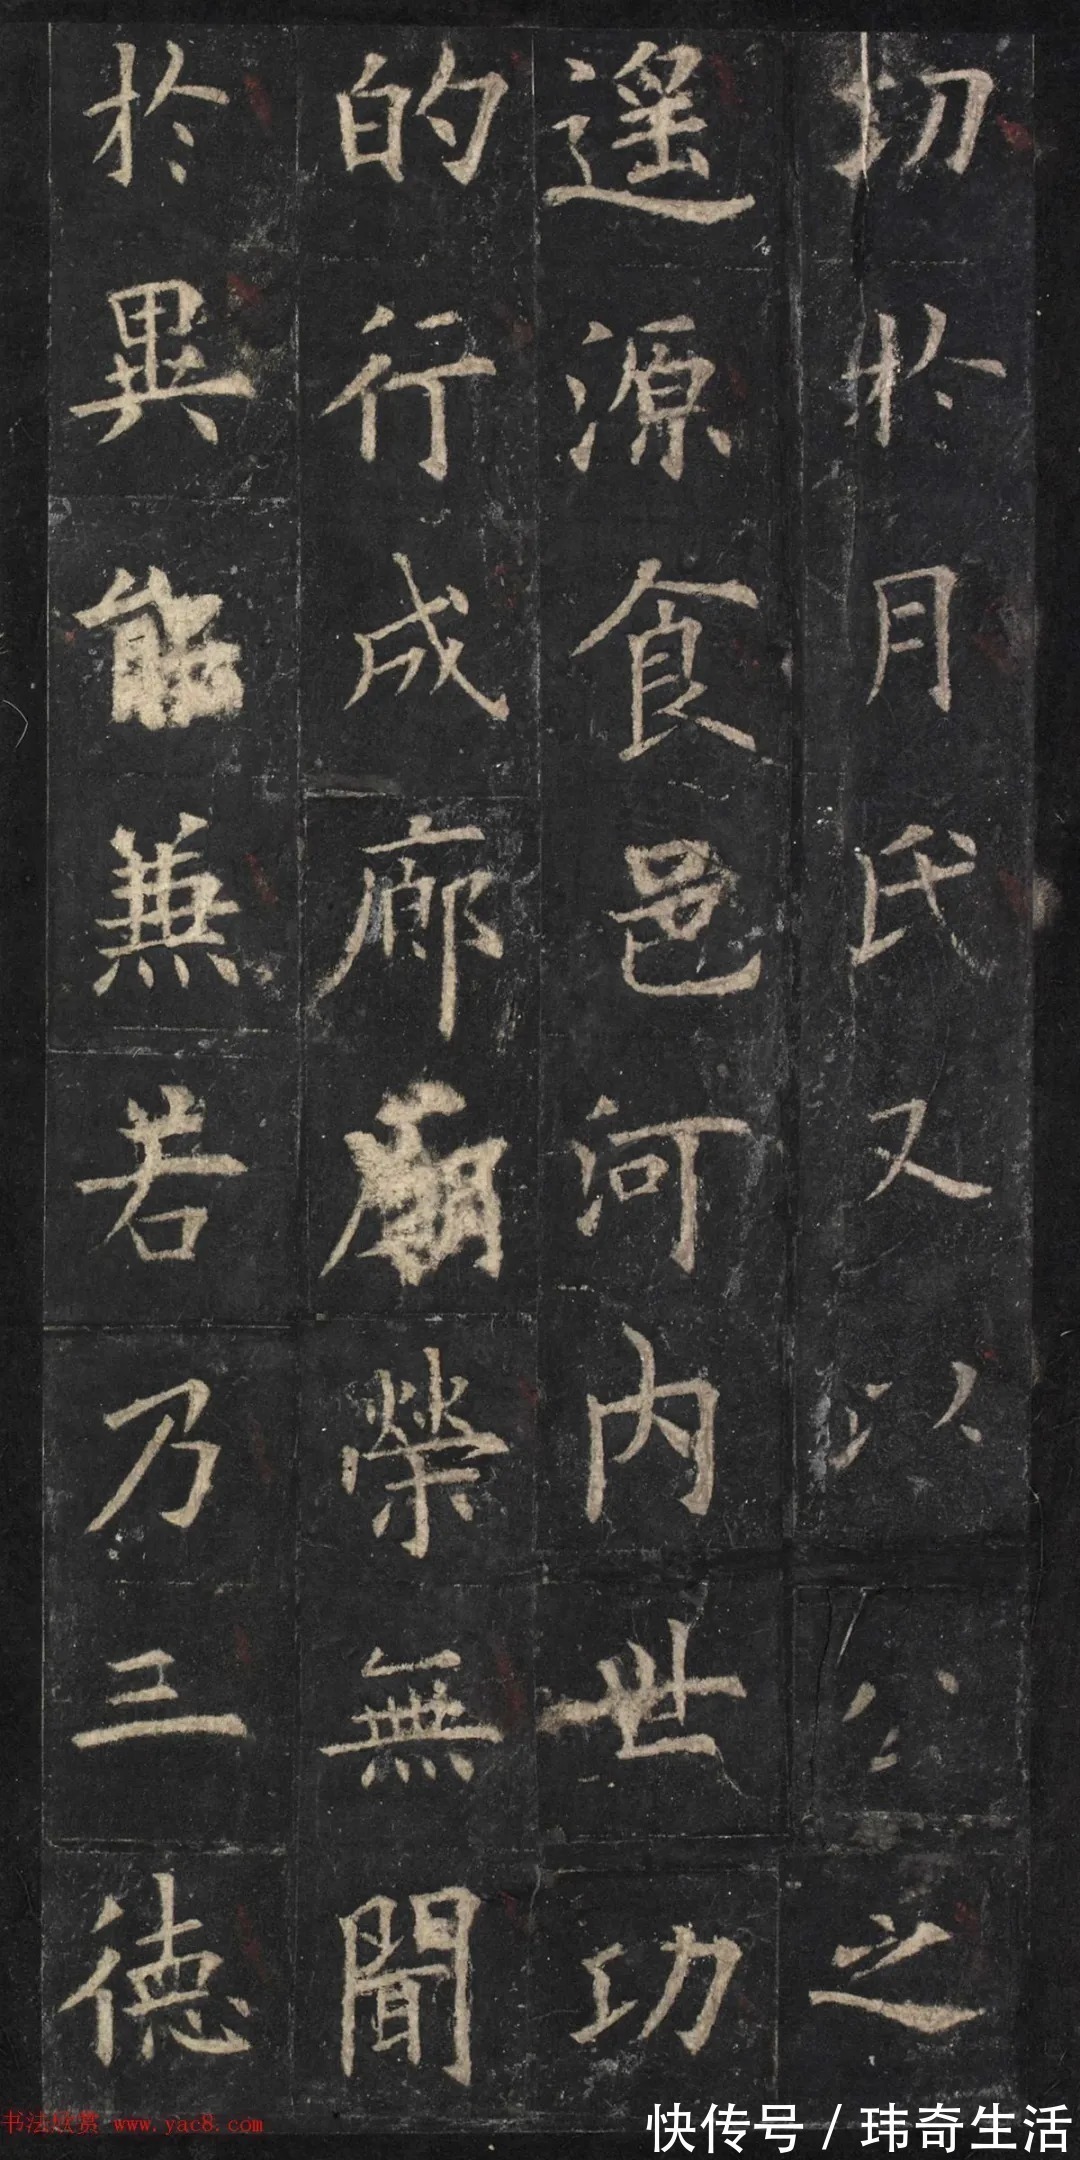 切於月氏又以公之
遥源食邑河内世功
的行成廊廟榮無聞
於異能兼若乃三德
书法欣赏 www.yac8.com
快传号 / 玮奇生活